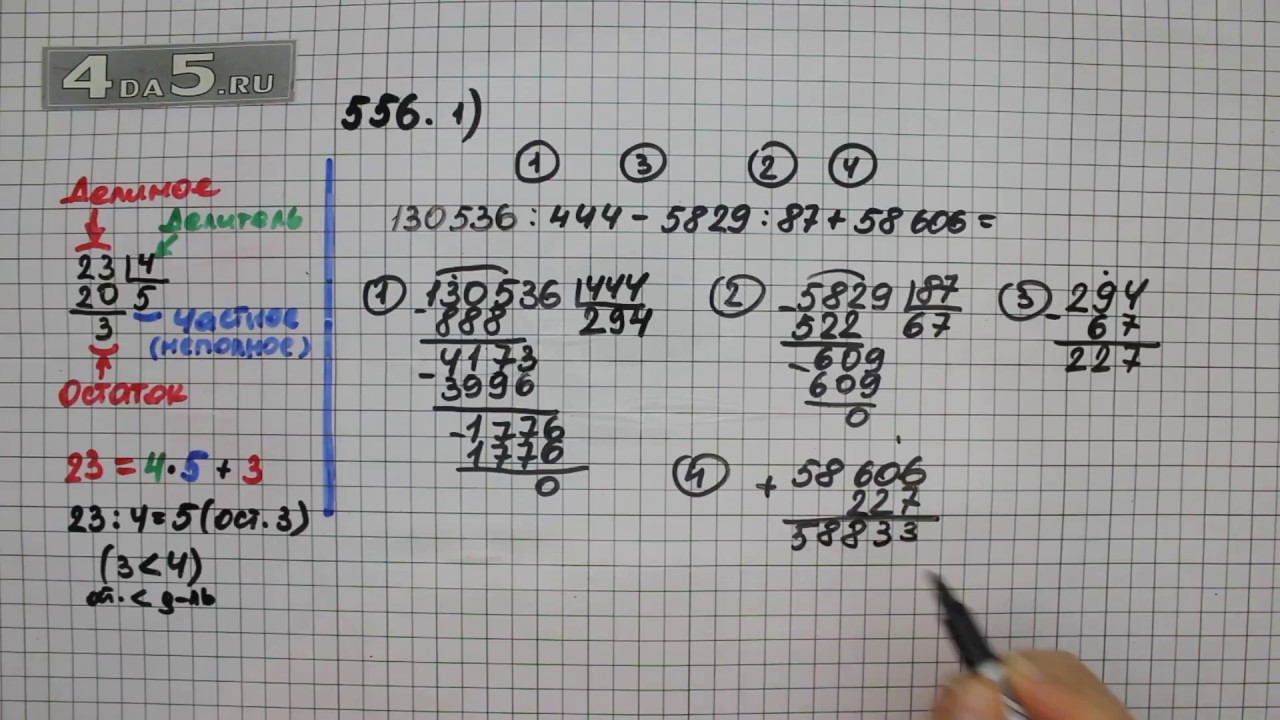 4DA5.RU
556. 1)
① ③ ② ④
130536 : 444 - 5829 : 87 + 58 606 =
Делимое
Делитель
23 4
20 5
3
частное
(неполное)
Остаток
23 = 4 · 5 + 3
23 : 4 = 5 (ост. 3)
(3 < 4)
ост. < д-ль
① 130536 444
- 888 294
4173
- 3996
- 1776
1776
0
② - 5829 87
522 67
- 609
609
0
③ 294
- 67
227
④ + 58 606
227
58833